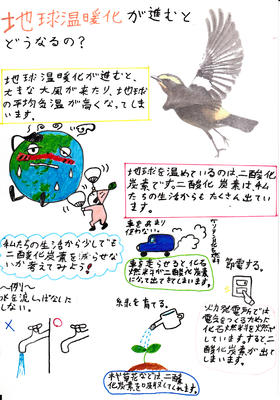 地球温暖化が進むと
どうなるの？
地球温暖化が進むと、
大きな台風が来たり、地球
の平均気温が高くなってしま
います。
地球を温めているのは二酸化
炭素です。二酸化炭素は私
たちの生活からもたくさん出てい
ます。
私たちの生活から少しでも
二酸化炭素を減らせない
か考えてみよう!
〜例〜
水を流しっぱなしに
しない。
車をあまり
使わない。
車を走らせると化石
燃料が二酸化炭素
になって出てきてしまいます。
節電する。
火力発電所では
電気をつくるため
化石燃料を燃やが
しています。すると二
酸化炭素が出てし
まいます。
緑を育てる。
木や草花などは二酸
化炭素を吸収してくれます。